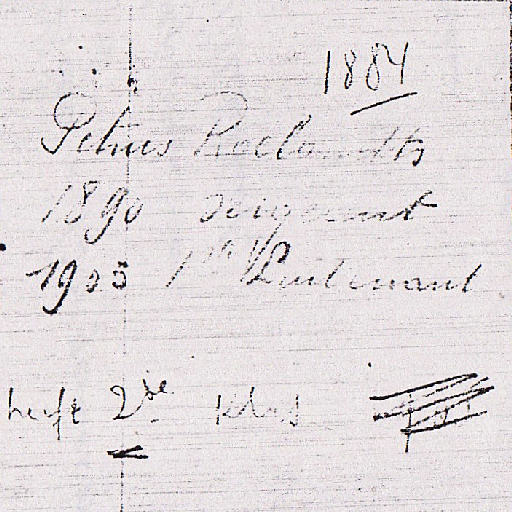 1884
Petrus Roelandts
1890 sergeant
1905 1ste Luitenant
heeft 2de Klas